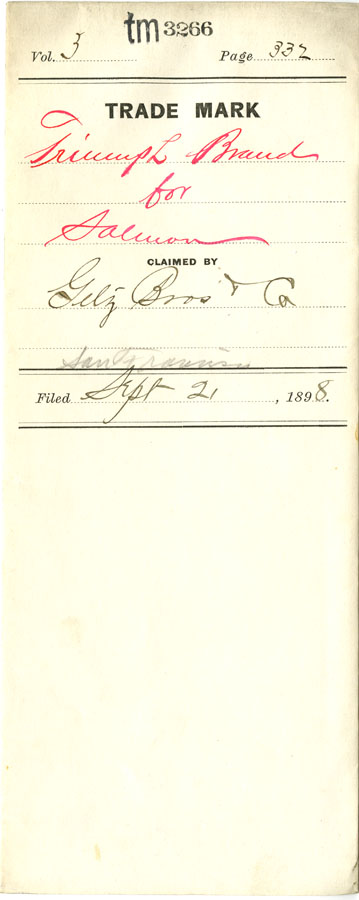 tm 3266
Vol. 3 Page 332
TRADE MARK
Triumph Brand
for
Salmon
CLAIMED BY
Getz Bros & Co
San Francisco
Filed Sept 21, 1898.